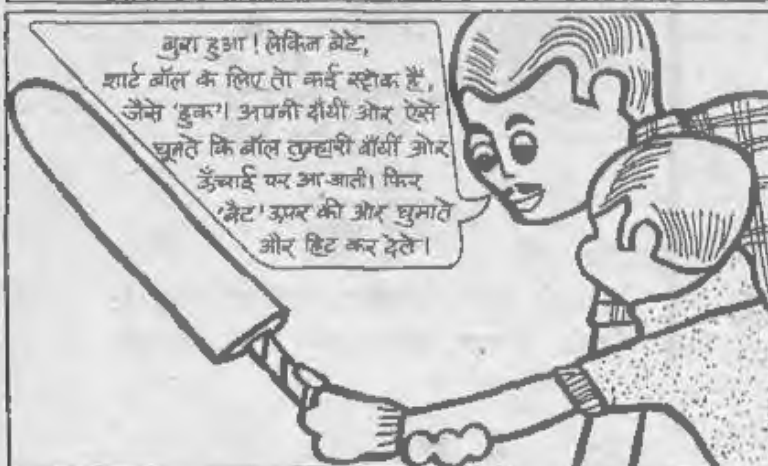 बुरा हुआ! लेकिन बेटे,
शार्ट बॉल के लिए तो कई स्ट्रोक हैं,
जैसे 'हुक'। अपनी दाँयीं ओर ऐसे
घूमते कि बॉल तुम्हारी बाँयीं ओर
ऊँचाई पर आ जाती। फिर
'बैट' ऊपर की ओर घुमाते
और हिट कर देते।